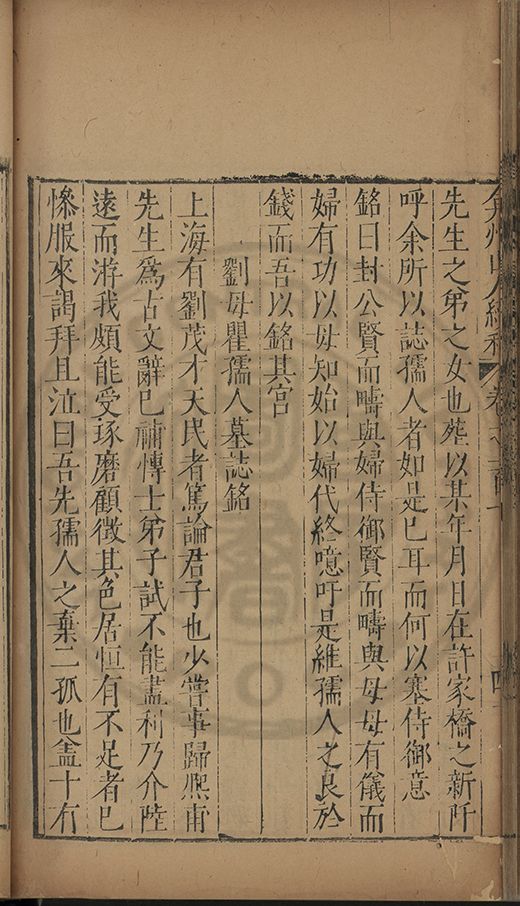 弇州山人續稿 卷之一百十 四
先生之弟之女也葬以某年月日在許家橋之新阡
呼余所以誌孺人者如是已耳而何以塞侍御意
銘曰封公賢而疇與婦侍御賢而疇與母母有儀而
婦有功以母知始以婦代終噫吁是維孺人之良於
錢而吾以銘其宫
劉母瞿孺人墓誌銘
上海有劉茂才天民者篤論君子也少嘗事歸熈甫
先生爲古文辭已補博士弟子試不能盡利乃介陸
遠而游我頗能受琢磨顧徵其色居恒有不足者已
慘服來謁拜且泣曰吾先孺人之棄二孤也盖十有